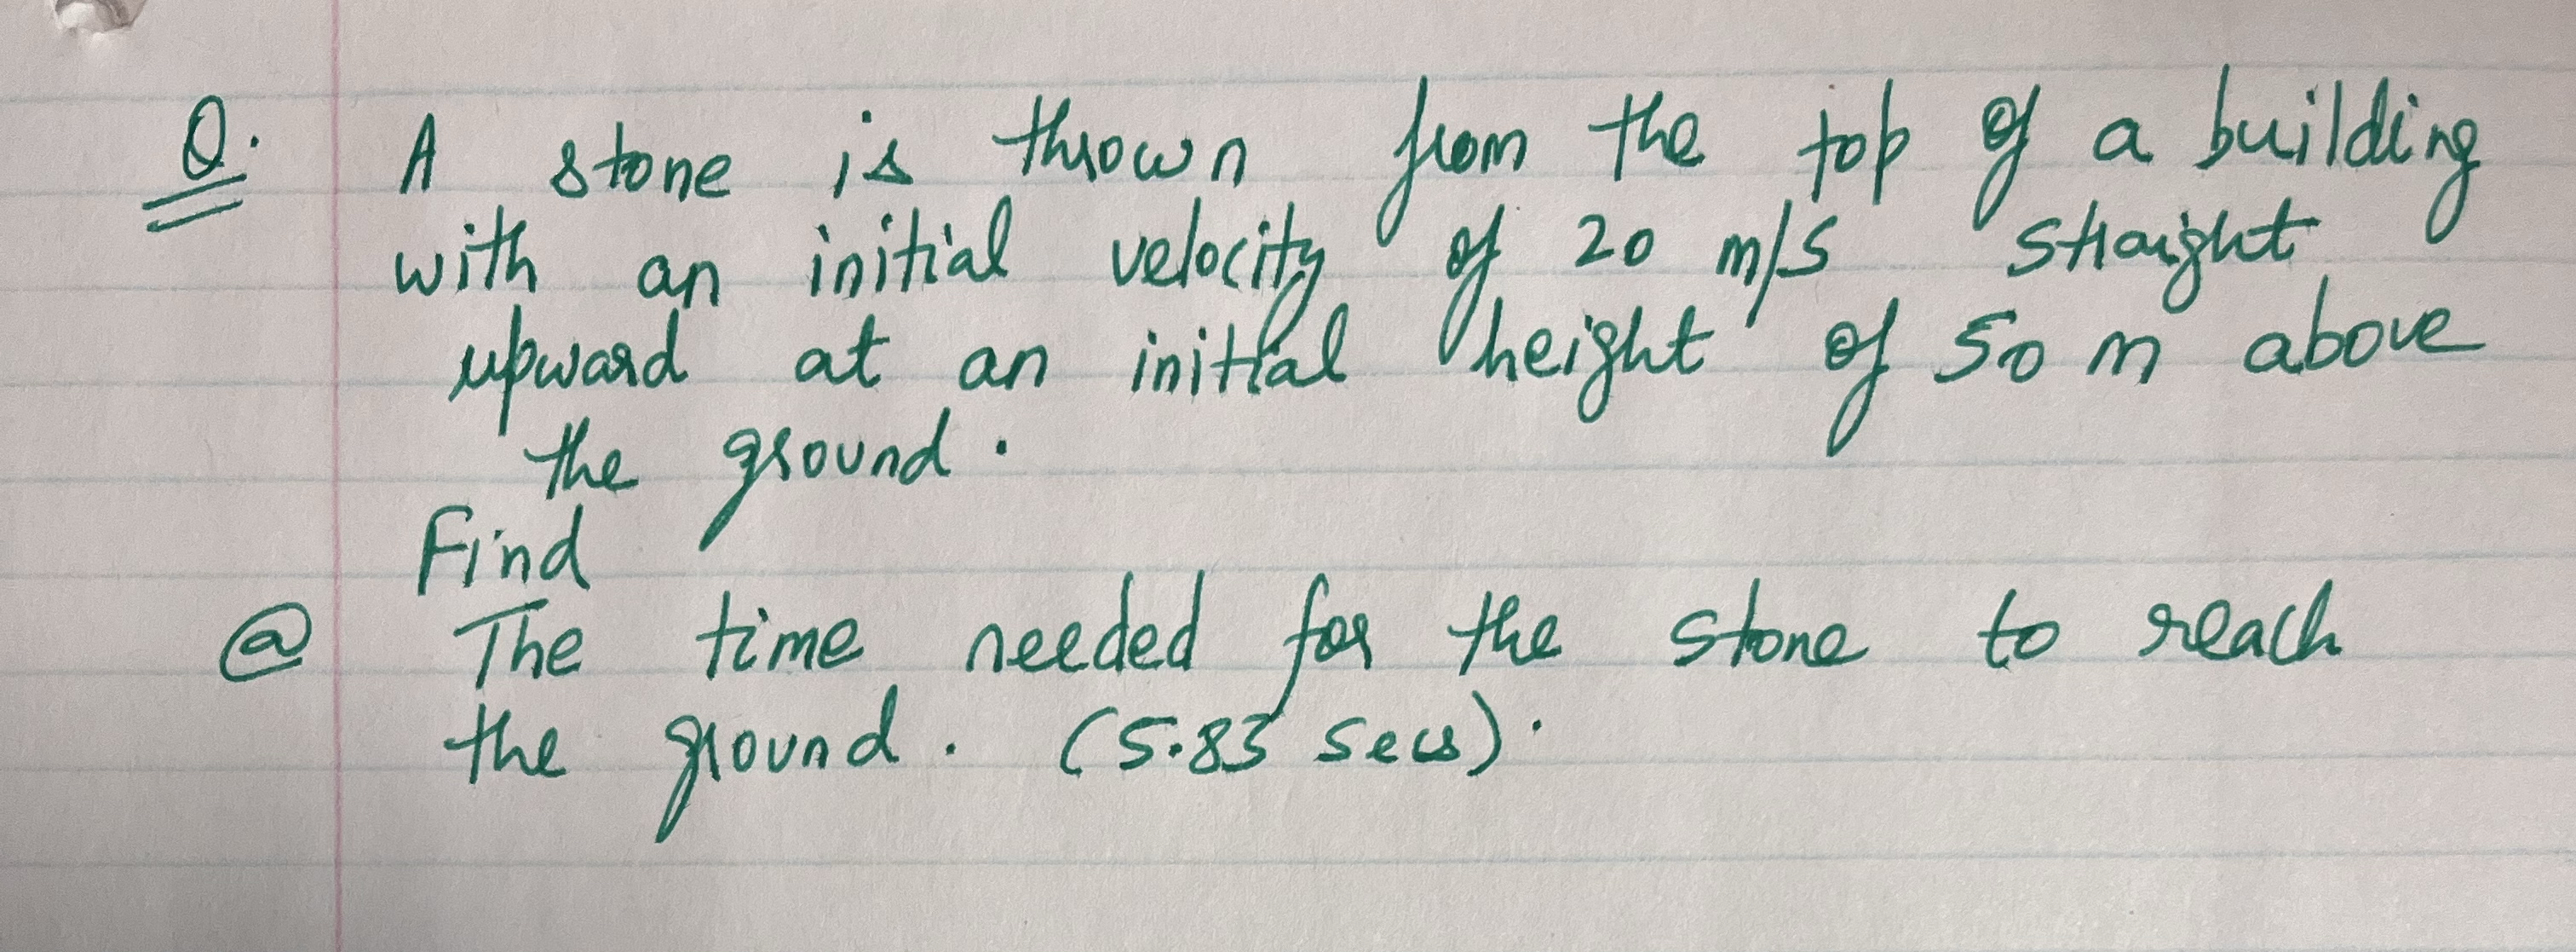 Q. A stone is thrown from the top of a building
with an initial velocity of 20 m/s straight
upward at an initial height of 50 m above
the ground.
Find
@ The time needed for the stone to reach
the ground. (5.83 secs).